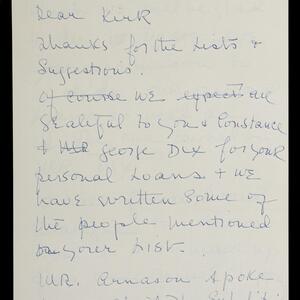 Dear Kirk
Thanks for the Lists +
Suggestions.
Of course we expect all
grateful to you + Constance
+ George Dix for your
personal Loans + we
have written some of
the people mentioned
your List.
Mr. Arnason spoke